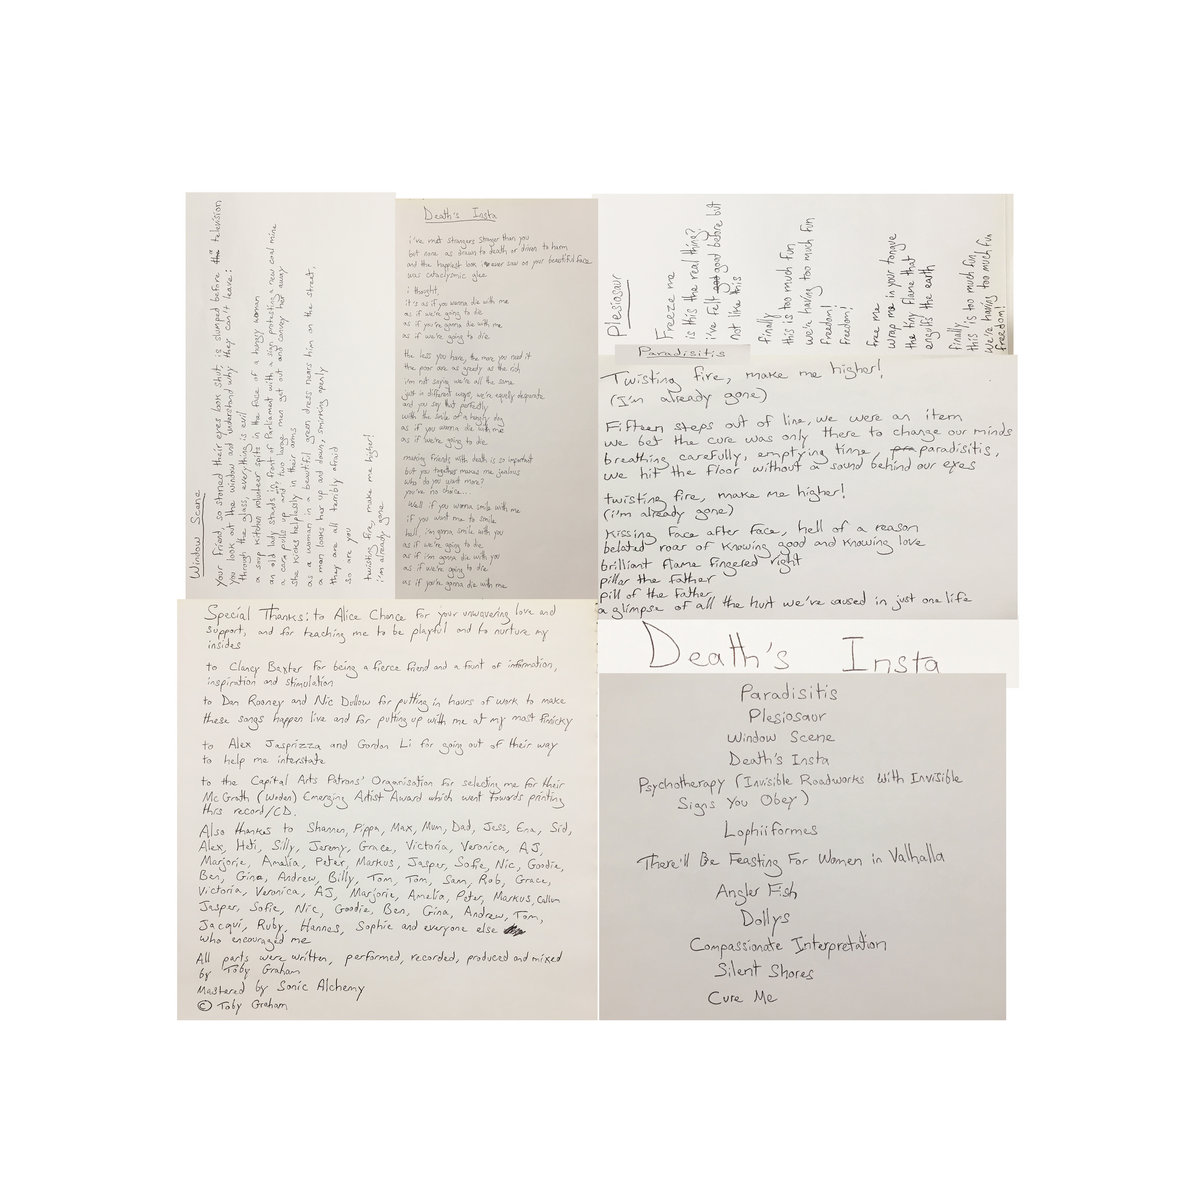 Window Scene
Your friend, so stoned their eyes look shut, is slumped before the television
You look out the window and understand why they can't leave:
through the glass, everything is evil
a soup kitchen volunteer spits in the face of a hungry woman
an old lady stands in front of Parliament with a sign protesting a new coal mine
a car pulls up and two large men get out and convey her away
she kicks helplessly in their arms
as a woman in a beautiful green dress nears him on the street,
a man looks her up and down, smirking openly
they are all terribly afraid
so are you
twisting fire, make me higher!
i'm already gone
Death's Insta
i've met strangers stranger than you
but none as drawn to death or driven to harm
and the happiest look i ever saw on your beautiful face
was cataclysmic glee
i thought,
it's as if you wanna die with me
as if we're going to die
as if you're gonna die with me
as if we're going to die
the less you have, the more you need it
the poor are as greedy as the rich
i'm not saying we're all the same
just in different ways, we're equally desperate
and you say that perfectly
with the smile of a hungry dog
as if you wanna die with me
as if we're going to die
making friends with death is so important
but you together makes me jealous
who do you want more?
you've no choice...
Well if you wanna smile with me
if you want me to smile
hell, i'm gonna smile with you
as if we're going to die
as if i'm gonna die with you
as if we're going to die
as if you're gonna die with me
Plesiosaur
Freeze me
is this the real thing?
i've felt good before but
not like this
finally
this is too much fun
we're having too much fun
freedom!
freedom!
free me
wrap me in your tongue
the tiny flame that
engulfs the earth
finally
this is too much fun,
we're having too much fun
freedom!
Paradisitis
Twisting fire, make me higher!
(I'm already gone)
Fifteen steps out of line, we were an item
we bet the cure was only there to change our minds
breathing carefully, emptying time, paradisitis,
we hit the floor without a sound behind our eyes
twisting fire, make me higher!
(i'm already gone)
kissing face after face, hell of a reason
belated roar of knowing good and knowing love
brilliant flame fingered right
pillar the father
pill of the father
a glimpse of all the hurt we've caused in just one life
Special Thanks: to Alice Chance for your unwavering love and
support, and for teaching me to be playful and to nurture my
insides
to Clancy Baxter for being a fierce friend and a fount of information,
inspiration and stimulation
to Dan Rooney and Nic Dullow for putting in hours of work to make
these songs happen live and for putting up with me at my most finicky
to Alex Jasprizza and Gordon Li for going out of their way
to help me interstate
to the Capital Arts Patrons' Organisation for selecting me for their
McGrath (Woden) Emerging Artist Award which went towards printing
this record/CD.
Also thanks to Shannen, Pippa, Max, Mum, Dad, Jess, Ena, Sid,
Alex, Heti, Silly, Jeremy, Grace, Victoria, Veronica, AJ,
Marjorie, Amalia, Peter, Markus, Jasper, Sofie, Nic, Goodie,
Ben, Gina, Andrew, Billy, Tom, Tom, Sam, Rob, Grace,
Victoria, Veronica, AJ, Marjorie, Amelia, Peter, Markus, Callum
Jasper, Sofie, Nic, Goodie, Ben, Gina, Andrew, Tom,
Jacqui, Ruby, Hannes, Sophie and everyone else
who encouraged me
All parts were written, performed, recorded, produced and mixed
by Toby Graham
Mastered by Sonic Alchemy
© Toby Graham
Death's Insta
Paradisitis
Plesiosaur
Window Scene
Death's Insta
Psychotherapy (Invisible Roadworks With Invisible
Signs You Obey)
Lophiiformes
There'll Be Feasting For Women in Valhalla
Angler Fish
Dollys
Compassionate Interpretation
Silent Shores
Cure Me